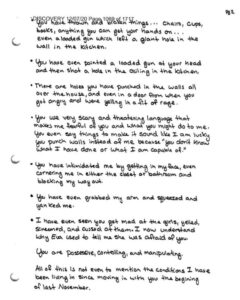 DISCOVERY 12/07/20 Page 1069 of 1717
pg 2
You have thrown and broken things... Chairs, Cups,
books, anything you can get your hands on...
even a loaded gun which left a giant hole in the
wall in the kitchen.
• You have even pointed a loaded gun at your head
and then shot a hole in the ceiling in the kitchen
• There are holes you have punched in the walls all
over the house, and even in a door from when you
got angry and were yelling in a fit of rage.
• You use very scary and threatening language that
makes me fearful of you and what you might do to me.
You even say things to make it sound like I am lucky
you punch walls instead of me, because "you don't know
what I have done or what I am capable of."
• You have intimidated me by getting in my face, even
cornering me in either the closet or bathroom and
blocking my way out.
• You have even grabbed my arm and squeezed and
yanked me.
• I have even seen you get mad at the girls, yelled,
screamed, and cussed at them. I now understand
why Eva used to tell me she was afraid of you
You are possessive, controlling, and manipulating.
All of this is not even to mention the conditions I have
been living in since moving in with you the begining
of last November.